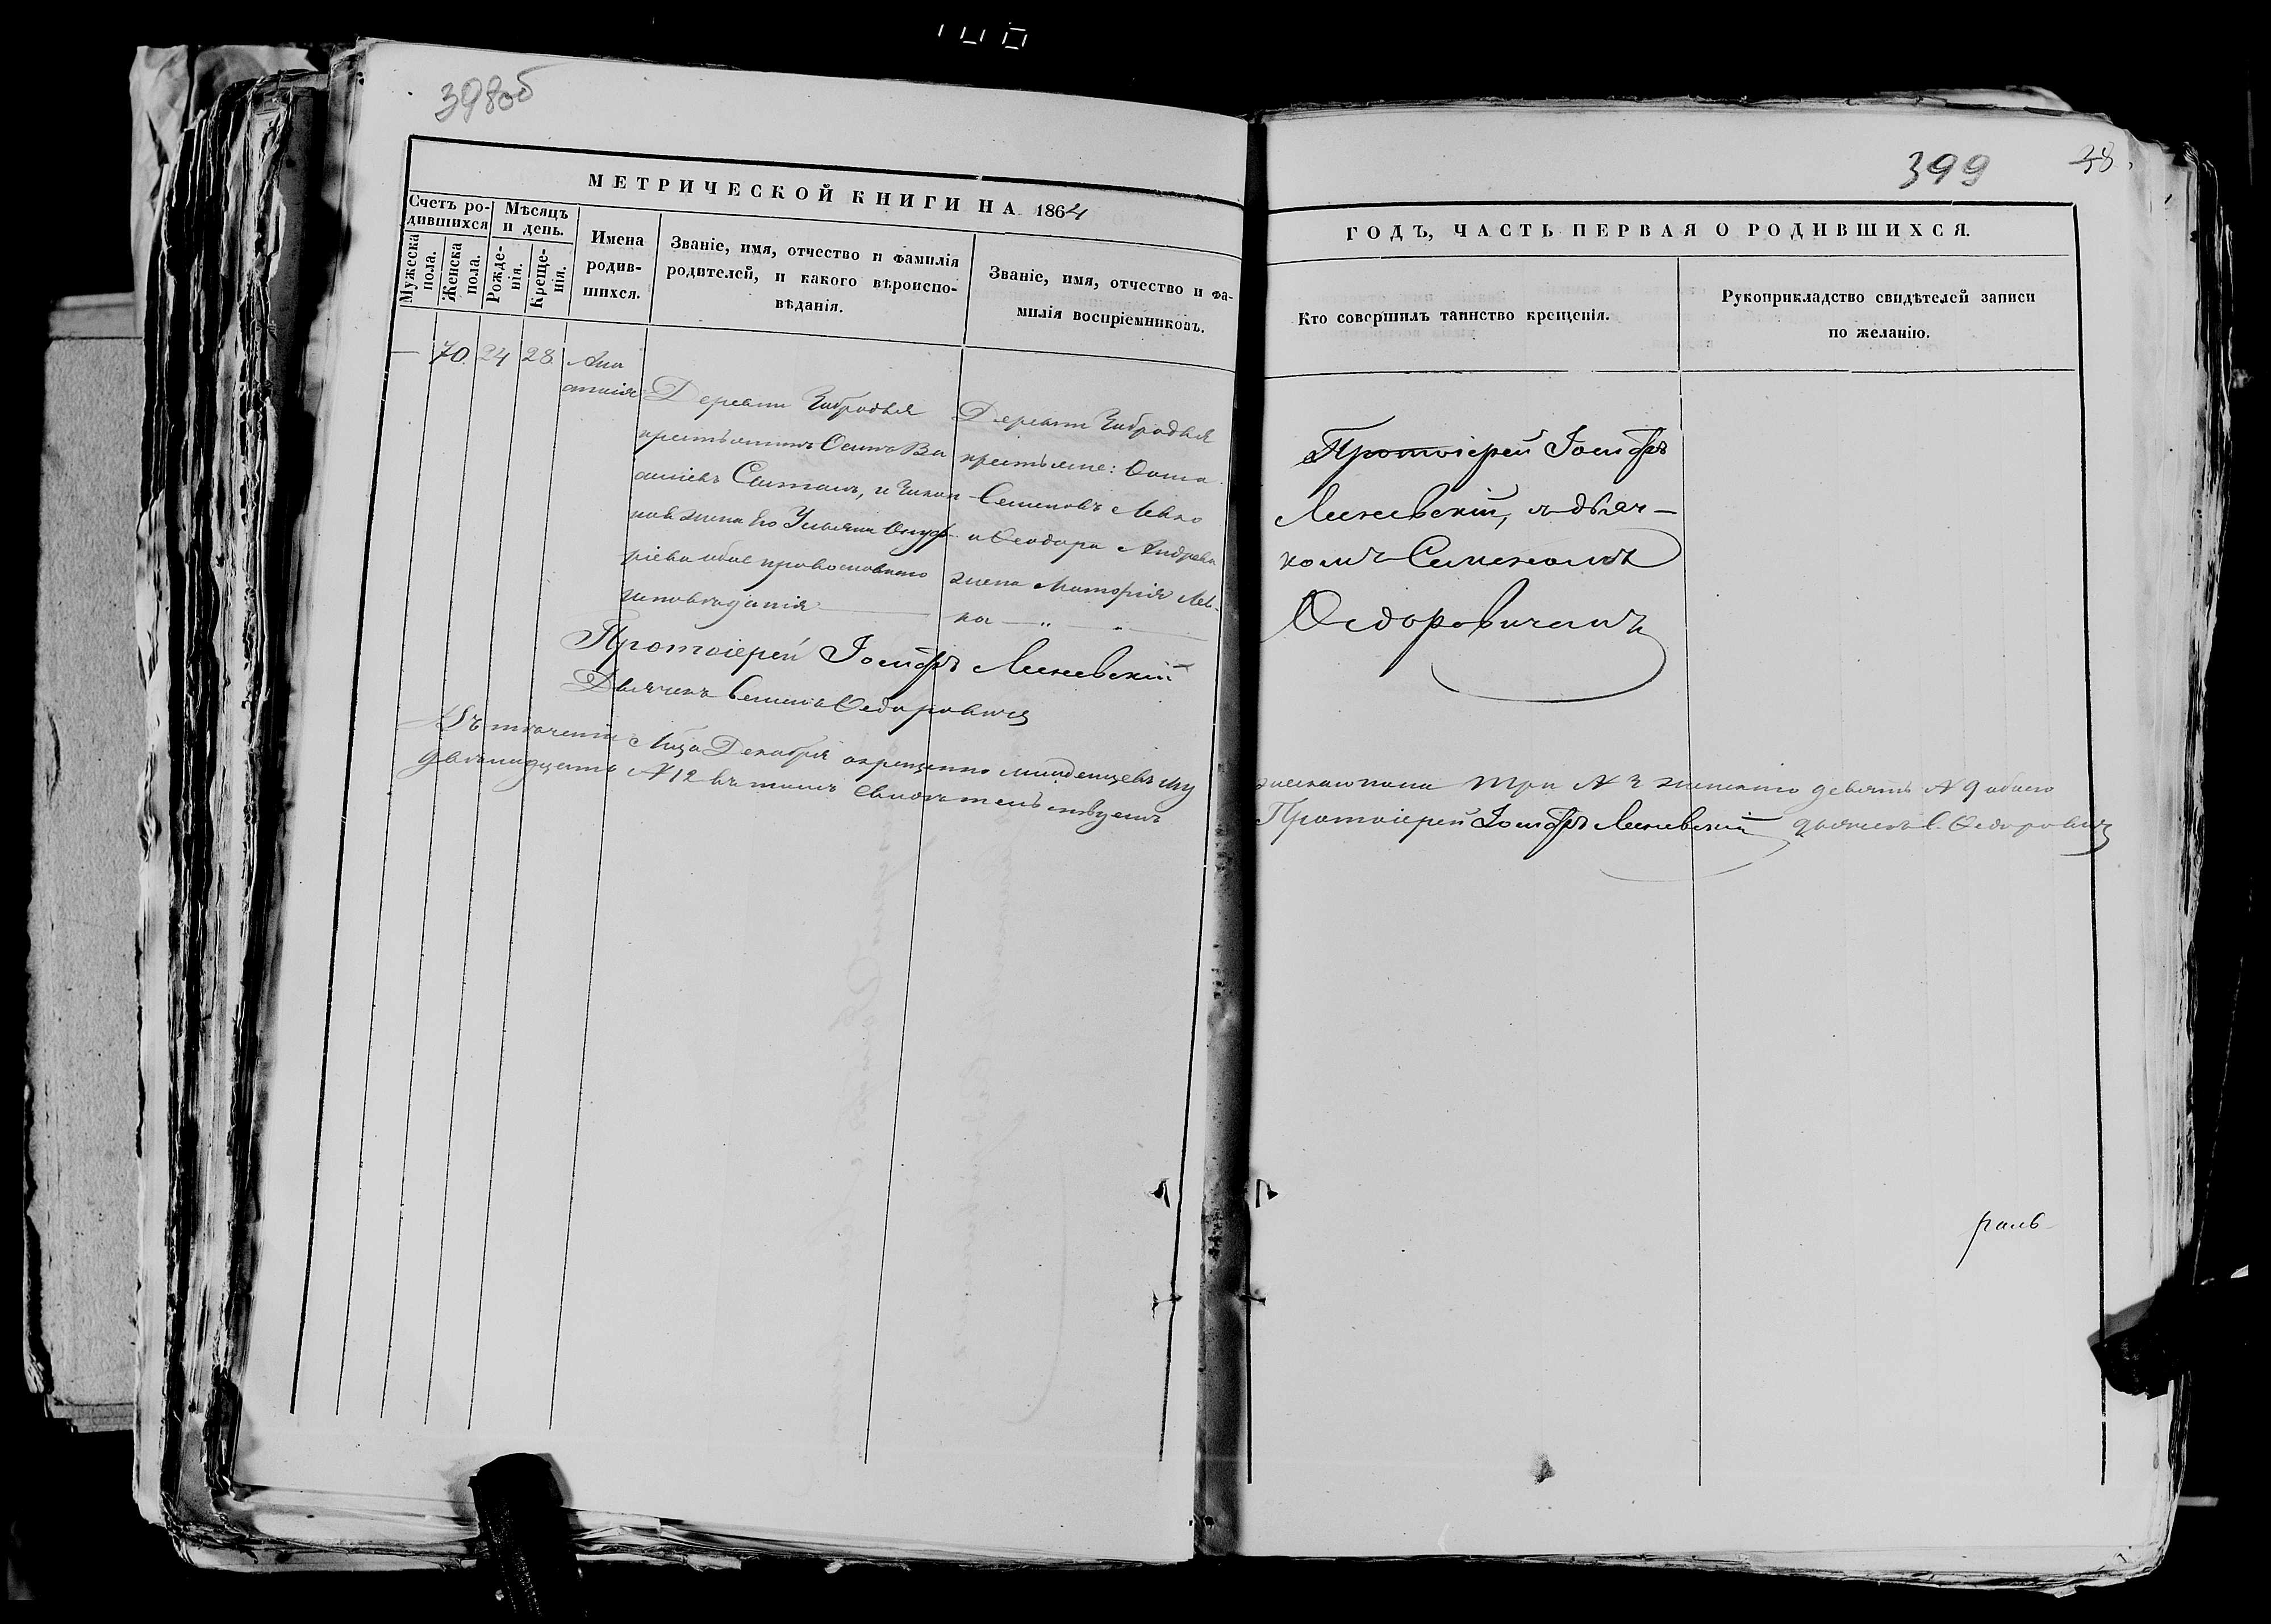 398об
МЕТРИЧЕСКОЙ КНИГИ НА 1864
Счетъ ро-
дившихся
Мѣсяцъ
и день.
Мужеска
пола.
Женска
пола.
Рожде-
нія.
Креще-
нія.
Имена
родив-
шихся.
Званіе, имя, отчество и фамилія
родителей, и какого вѣроиспо-
вѣданія.
Званіе, имя, отчество и фа-
милія воспріемниковъ.
— 70. 24 28.
Ана
стасія
Деревни
крестьянинъ Осипъ Ва
и закон
ная жена его Ульяна Онуф-
ріева обое православнаго
исповѣданія
Деревни
крестьяне: Ѳома
Семеновъ Левко
и Ѳеодора Андреева
жена Лев-
ка — „ — „ —
Протоіерей Іосифъ Линевскій
Дьячекъ Семенъ Ѳедоровичъ
Въ теченіи Мца Декабря окрещенно младенцевъ му
двѣнадцать N 12 въ томъ свидѣтельствуемъ
399
38.
ГОДЪ, ЧАСТЬ ПЕРВАЯ О РОДИВШИХСЯ.
Кто совершилъ таинство крещенія.
Рукоприкладство свидѣтелей записи
по желанію.
Протоіерей Іосифъ
Линевскій, съ дьяч-
комъ Семеномъ
Ѳедоровичемъ
жескаго пола три N 3 женскаго девять N 9 обоего
Протоіерей Іосифъ Линевскій дьячекъ С. Ѳедоровичъ